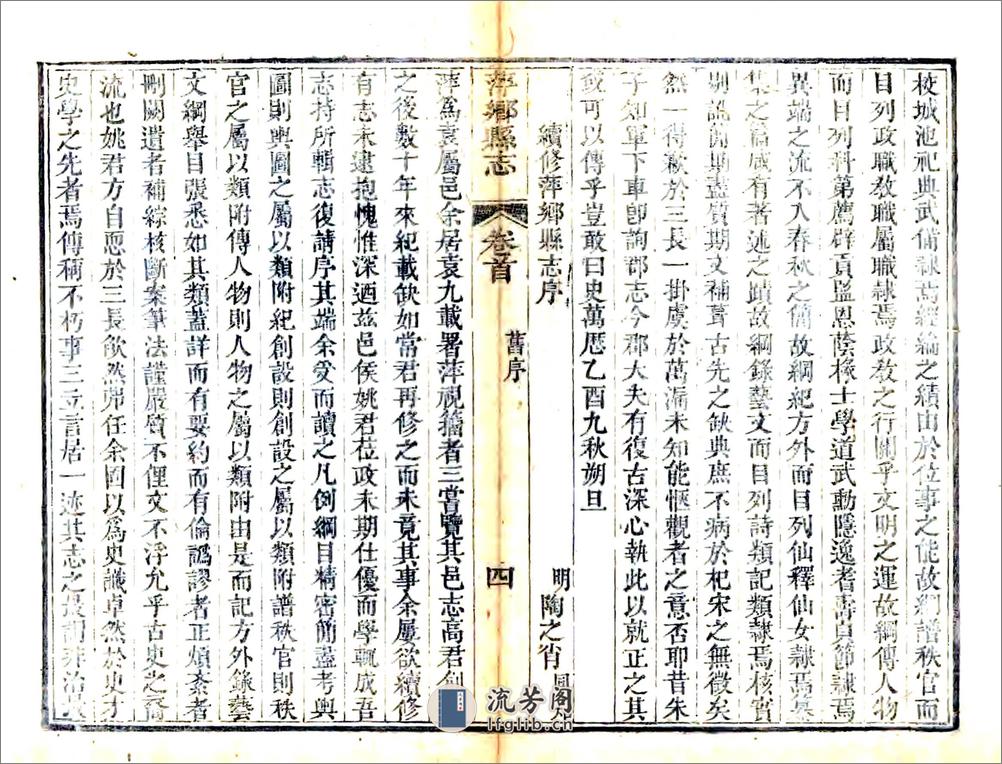 校城池祀典武備隸焉經綸之績由於位事之能故綱譜秩官而
目列政職教職屬職隸焉政教之行關乎文明之運故綱傳人物
而目列科第薦辟貢監恩蔭掾士學道武勳隱逸耆壽貞節隸焉
異端之流不入春秋之簡故綱紀方外而目列仙釋仙女隸焉纂
集之富咸有著述之蹟故綱錄藝文而目列詩類記類隸焉核實
則訊聞期盡質期文補葺古先之缺典庶不病於杞宋之無徵矣
然一得歉於三長一掛虞於萬漏未知能愜觀者之意否耶昔朱
子知軍下車卽詢郡志今郡大夫有復古深心執此以就正之其
或可以傳乎豈敢曰史萬歷乙酉九秋朔旦
續修萍鄉縣志序
明 陶之肖
萍鄉縣志 卷首 舊序 四
萍爲袁屬邑余居袁九載署萍視籓者三嘗覽其邑志高君創
之後數十年來紀載缺如常君再修之而未竟其事余屢欲續修
有志未逮抱愧惟深迺茲邑侯姚君莅政未期仕優而學輒成吾
志持所輯志復請序其端余受而讀之凡例綱目精密簡盡考輿
圖則輿圖之屬以類附紀創設則創設之屬以類附譜秩官則秩
官之屬以類附傳人物則人物之屬以類附由是而記方外錄藝
文綱舉目張悉如其類蓋詳而有要約而有倫譌謬者正煩紊者
刪闕遺者補綜核斷案筆法謹嚴質不俚文不浮允乎古史之裔
流也姚君方自恧於三長欿然弗任余固以爲史識卓然於史才
史學之先者焉傳稱不朽事三立言居一迹其志之
流芳阁
lfglib.cn